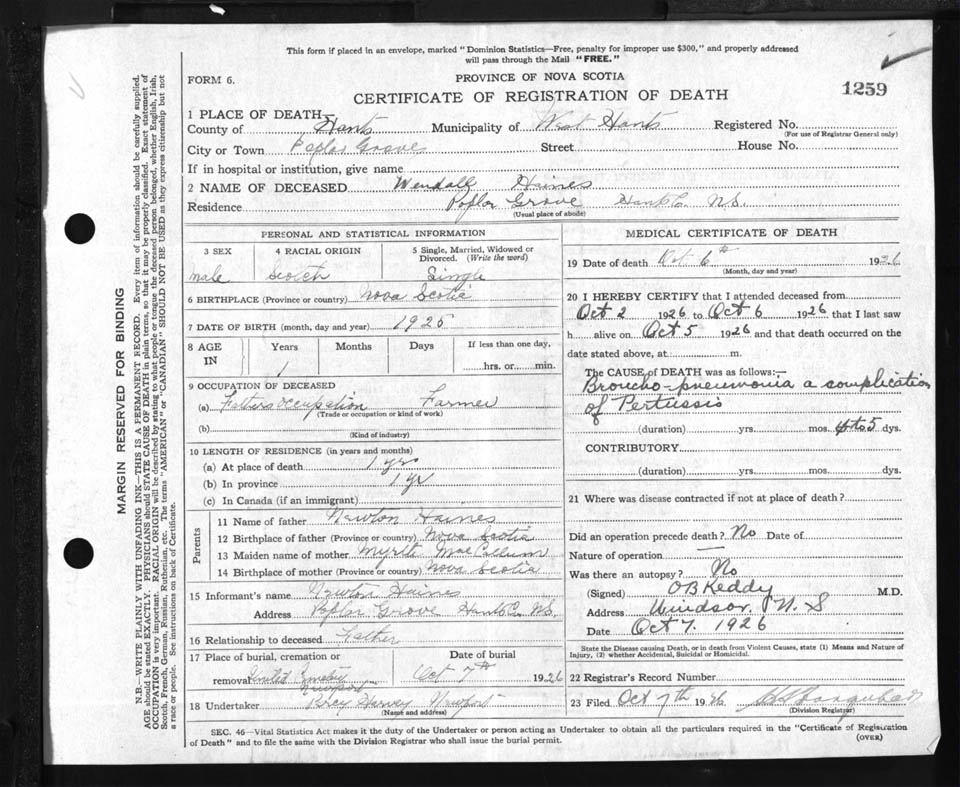 This form if placed in an envelope, marked "Dominion Statistics—Free, penalty for improper use $300," and properly addressed
will pass through the Mail "FREE."
FORM 6.
PROVINCE OF NOVA SCOTIA
CERTIFICATE OF REGISTRATION OF DEATH
1259
MARGIN RESERVED FOR BINDING
N.B.—WRITE PLAINLY WITH UNFADING INK—THIS IS A PERMANENT RECORD. Every item of information should be carefully supplied.
AGE should be stated EXACTLY. PHYSICIANS should STATE CAUSE OF DEATH in plain terms, so that it may be properly classified. Exact statement of
OCCUPATION is very important. RACIAL ORIGIN will be described by stating to what people or tongue the deceased person belonged, whether English, Irish,
Scotch, French, German, Russian, Ruthenian, etc. The terms "AMERICAN" or "CANADIAN" SHOULD NOT BE USED as they express citizenship but not
a race or people. See instructions on back of Certificate.
1 PLACE OF DEATH
County of Hants Municipality of West Hants Registered No.
(For use of Registrar General only)
City or Town Poplar Grove Street House No.
If in hospital or institution, give name
2 NAME OF DECEASED Wendall Haines
Residence Poplar Grove Hants Co. N.S.
(Usual place of abode)
PERSONAL AND STATISTICAL INFORMATION
3 SEX 4 RACIAL ORIGIN 5 Single, Married, Widowed or
Divorced. (Write the word)
male Scotch Single
6 BIRTHPLACE (Province or country) Nova Scotia
7 DATE OF BIRTH (month, day and year) 1925
8 AGE IN Years Months Days If less than one day,
1 hrs. or min.
9 OCCUPATION OF DECEASED
(a) Fathers occupation Farmer
(Trade or occupation or kind of work)
(b)
(Kind of industry)
10 LENGTH OF RESIDENCE (in years and months)
(a) At place of death 1 yr
(b) In province 1 yr
(c) In Canada (if an immigrant)
Parents
11 Name of father Newton Haines
12 Birthplace of father (Province or country) Nova Scotia
13 Maiden name of mother Myrtle MacCallum
14 Birthplace of mother (Province or country) Nova Scotia
15 Informant's name Newton Haines
Address Poplar Grove Hants Co. N.S.
16 Relationship to deceased Father
17 Place of burial, cremation or Date of burial
removal Newport Oct 7th 1926
18 Undertaker Harvey Newport
(Name and address)
MEDICAL CERTIFICATE OF DEATH
19 Date of death Oct. 6th 1926
(Month, day and year)
20 I HEREBY CERTIFY that I attended deceased from
Oct 2 1926 to Oct 6 1926 that I last saw
h alive on Oct 5 1926 and that death occurred on the
date stated above, at m.
The CAUSE OF DEATH was as follows:—
Broncho-pneumonia a complication
of Pertussis
(duration) yrs. mos. 4 to 5 dys.
CONTRIBUTORY
(duration) yrs. mos. dys.
21 Where was disease contracted if not at place of death?
Did an operation precede death? No Date of
Nature of operation —
Was there an autopsy? No
(Signed) O B Keddy M.D.
Address Windsor, N. S
Date Oct 7. 1926
State the Disease causing Death, or in death from Violent Causes, state (1) Means and Nature of
Injury, (2) whether Accidental, Suicidal or Homicidal.
22 Registrar's Record Number
23 Filed Oct 7th 1926
(Division Registrar)
SEC. 46—Vital Statistics Act makes it the duty of the Undertaker or person acting as Undertaker to obtain all the particulars required in the "Certificate of Registration
of Death" and to file the same with the Division Registrar who shall issue the burial permit.
(OVER)